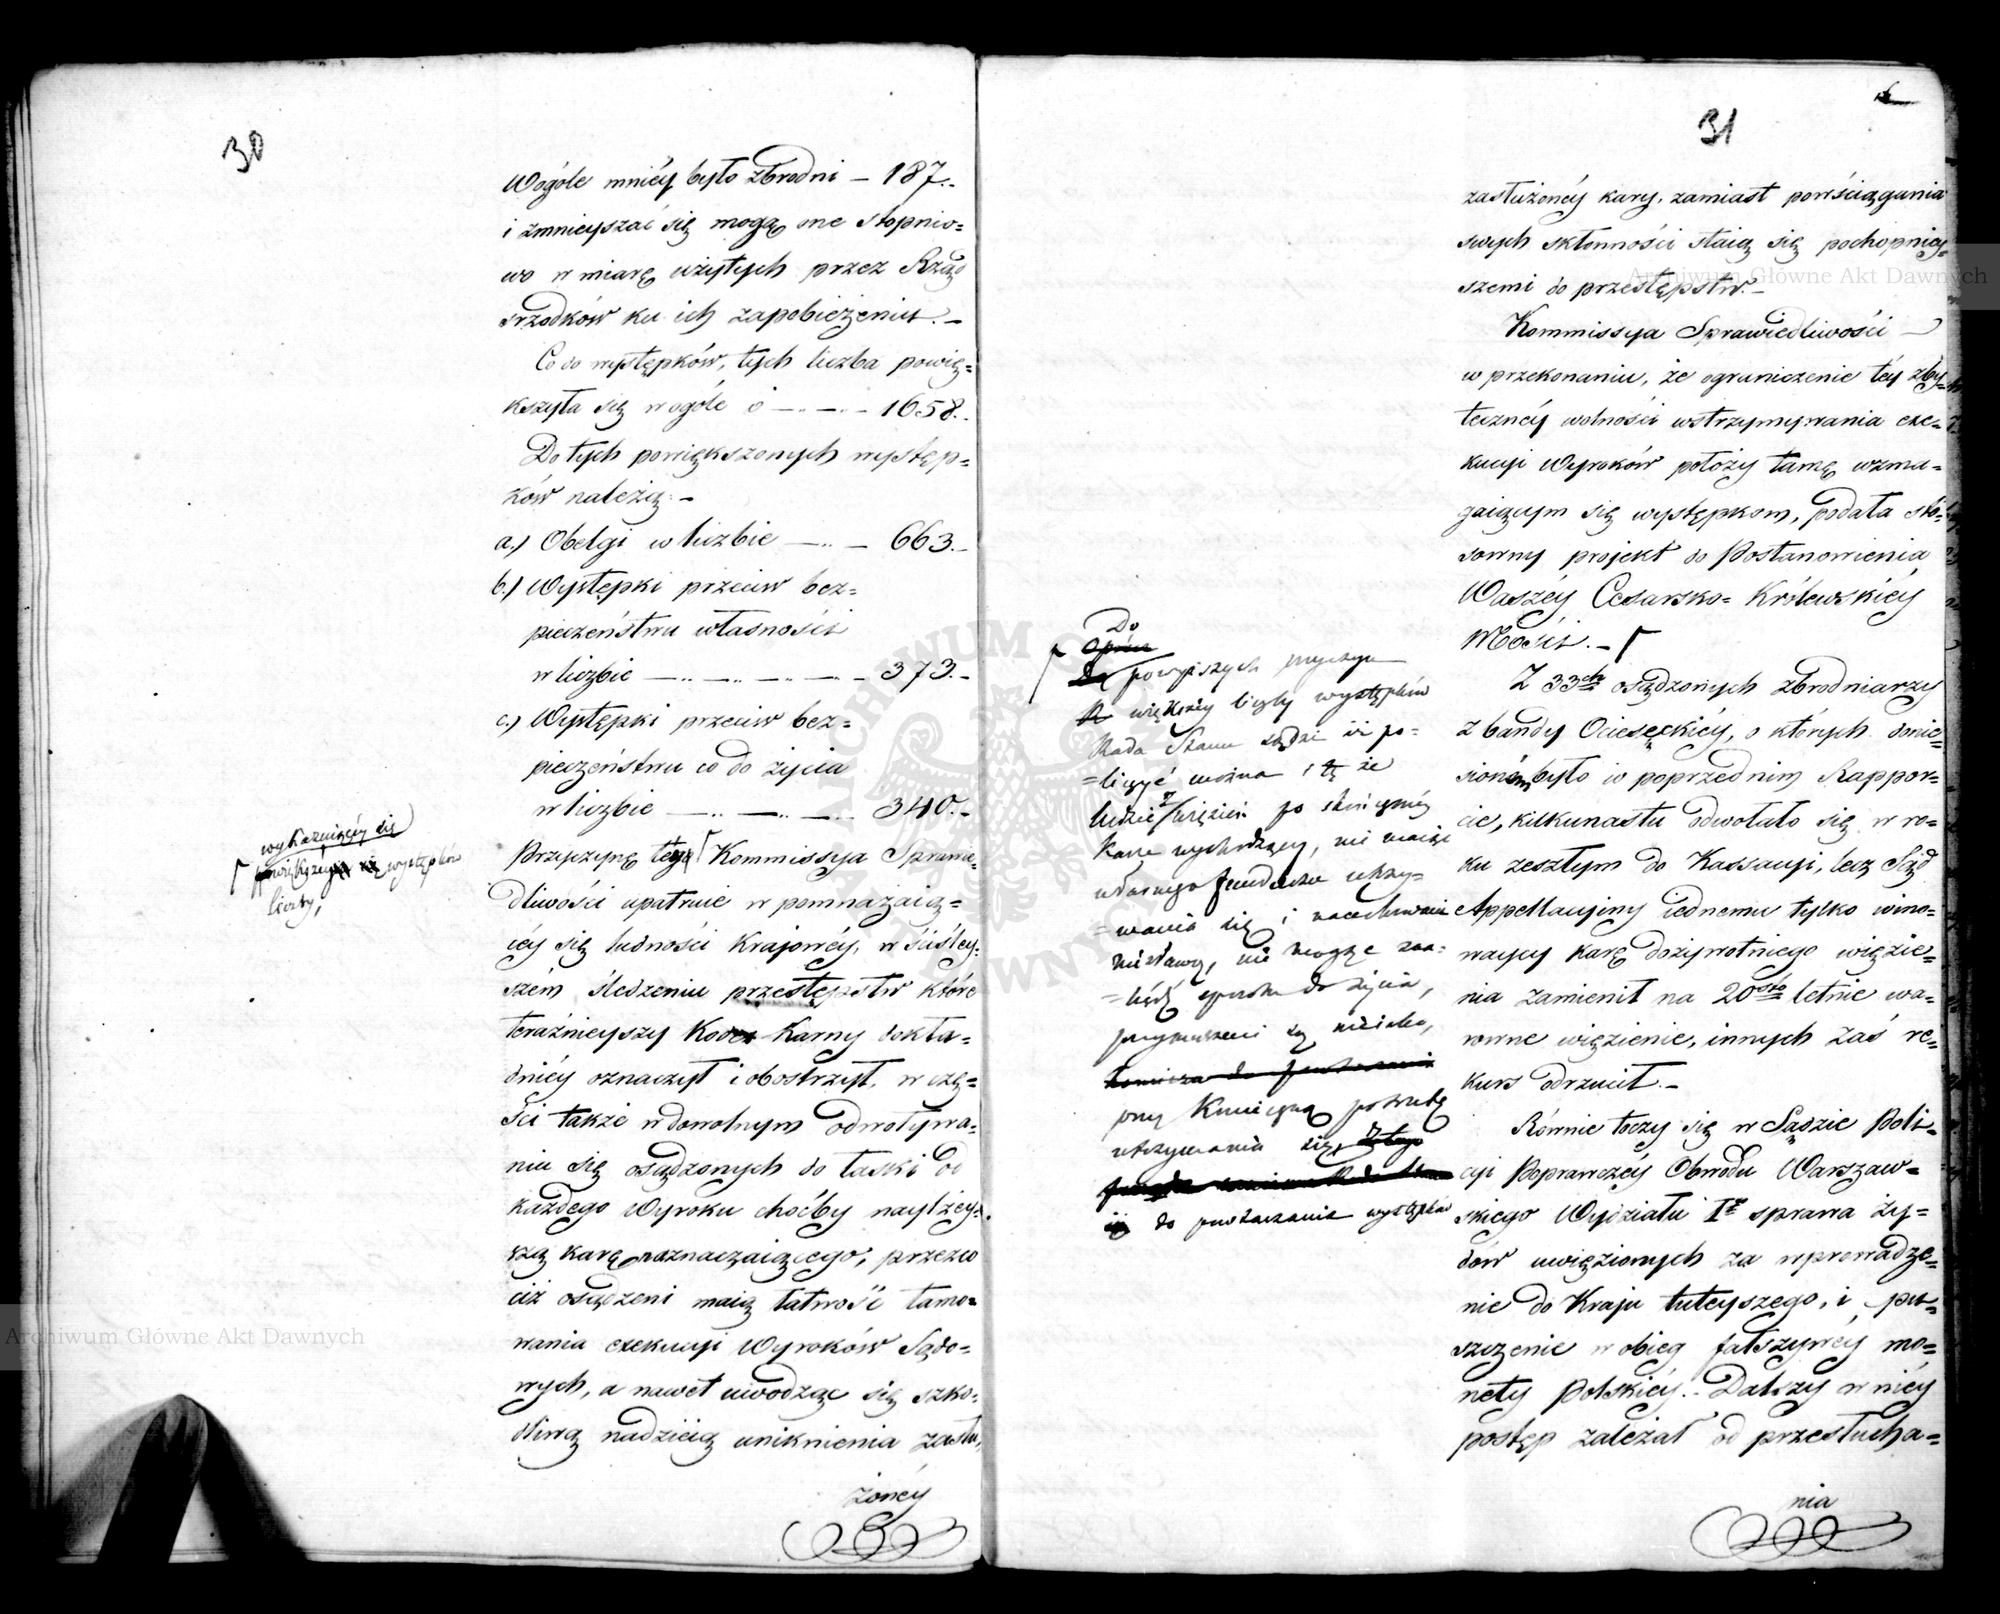 30
Wogóle mniéy było zbrodni — 187.-
i zmnieyszać się mogą one stopnio=
wo w miarę użytych przez Rząd
srzodków ku ich zapobieżeniu.-
Co do występków, tych liczba powię=
kszyła się wogóle o — — - 1658.-
Do tych powiększonych występ=
ków należą:-
a.) Obelgi w liczbie — - — 663.-
b.) Występki przeciw bez=
pieczeństwu własności
w liczbie — - — - — - — 373.-
c.) Występki przeciw bez=
pieczeństwu co do życia
w liczbie — - — - — 340.-
Przyczynę tey Kommissya Sprawie=
dliwości upatruie w pomnażaią=
céy się ludności Krajowéy, w ściśley=
szém śledzeniu przestępstw które
teraźnieyszy Kodex Karny dokła=
dniéy oznaczył i obostrzył, w czę=
ści także w dowolnym odwoływa=
niu się osądzonych do łaski od
każdego Wyroku choćby naylżey=
szą karę naznaczaiącego, przez co
ciż osądzeni maią łatwość tamo=
wania exekucyi Wyroków Sądo=
wych, a nawet uwodząc się szko=
dliwą nadzieią uniknienia zasłu=
żonéy
wykazuiącéy się
występków
liczby,
31
zasłużonéy kary, zamiast powściągania
swych skłonności staią się pochopniey=
szemi do przestępstw.-
Kommissya Sprawiedliwości —
w przekonaniu, że ograniczenie téy zby=
teczney wolności wstrzymywania exe=
kucyi Wyroków położy tamę wzma=
gaiącym się występkom, podała sto=
sowny projekt do Postanowienia
Waszéy Cesarsko= Królewskiéy
Mości.-
Z 33ch osądzonych zbrodniarzy
z bandy Ociesęckiéy, o których donie=
sioném było w poprzednim Rappor=
cie, kilkunastu odwołało się w ro=
ku zeszłym do Kassacyi, lecz Sąd
Appellacyiny iednemu tylko wino=
waycy karę dożywotniego więzie=
nia zamienił na 20sto letnie wa=
rowne więzienie, innych zaś re=
kurs odrzucił.-
Równie toczy się w Sądzie Poli=
cyi Poprawczéy Obwodu Warszaw=
skiego Wydziału I° sprawa ży=
dów uwięzionych za wprowadze=
nie do Kraju tuteyszego, i pu=
szczenie w obieg fałszywéy mo=
nety Polskiéy.- Dalszy w niéy
postęp zależał od przesłucha=
nia
Do
Oprócz
powyższych przyczyn
większéy liczby występków
Rada Stanu sądzi iż po=
=liczyć można i tę że
ludzie z więzień po skończonéy
karze wychodzący, nie maiąc
własnego funduszu utrzy=
=mania się i nacechowani
niesławą, nie mogąc zna=
=léźć sposobu do życia,
przymuszeni są nieiako,
przy konieczną potrzebę
utrzymania się,
do powtarzania występków
Archiwum Główne Akt Dawnych
Archiwum Główne Akt Dawnych
ARCHIWUM GŁÓWNE AKT DAWNYCH